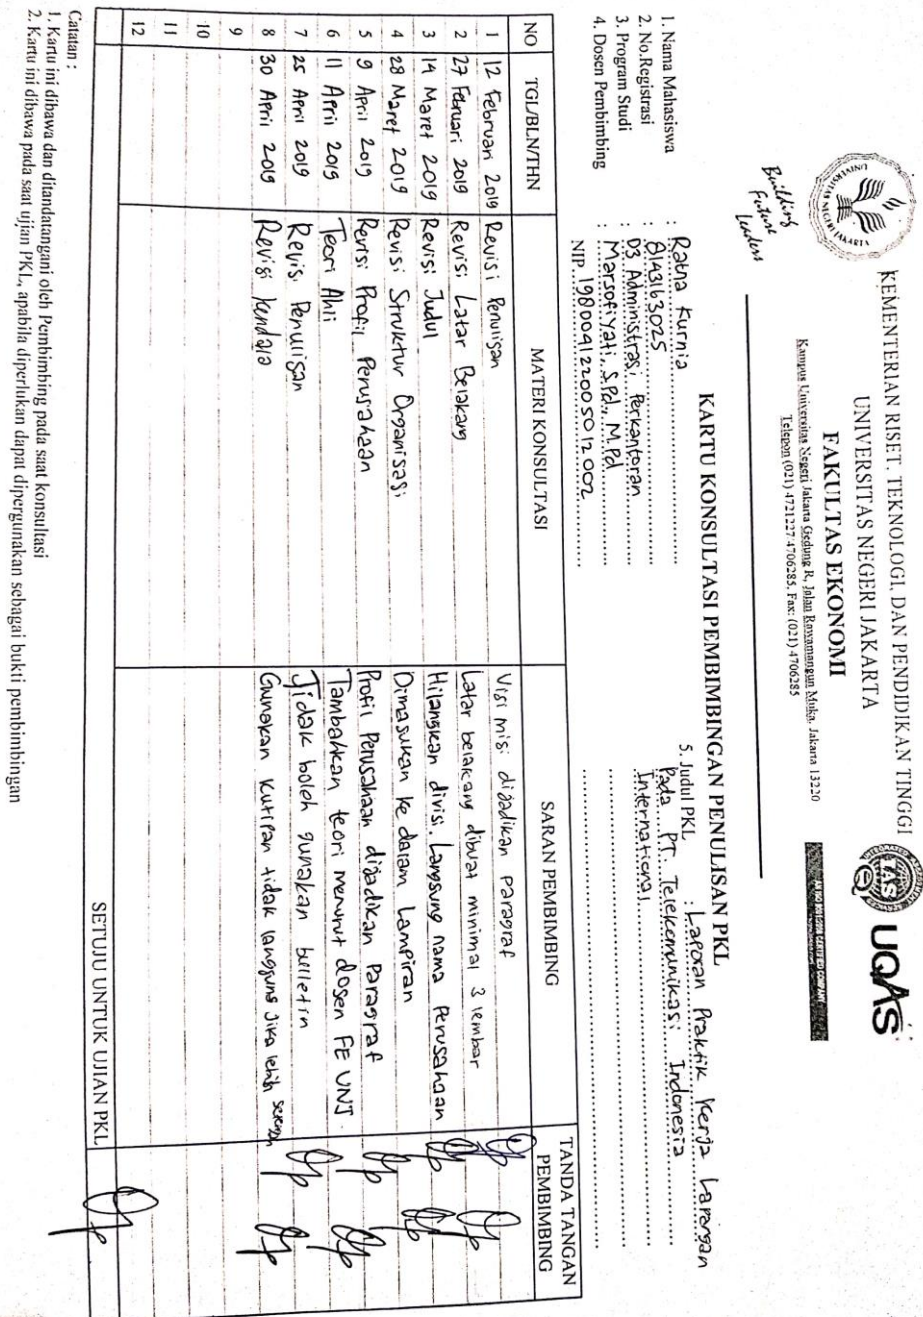 KEMENTERIAN RISET, TEKNOLOGI, DAN PENDIDIKAN TINGGI
UNIVERSITAS NEGERI JAKARTA
FAKULTAS EKONOMI
Kampus Universitas Negeri Jakarta Gedung R, Jalan Rawamangun Muka, Jakarta 13220
Telepon (021) 4721227/4706285, Fax: (021) 4706285
UNIVERSITAS NEGERI JAKARTA
Building
Future
Leaders
IAS
UQAS
KARTU KONSULTASI PEMBIMBINGAN PENULISAN PKL
1. Nama Mahasiswa : Ratna Kurnia
2. No.Registrasi : 8143163025
3. Program Studi : D3 Administrasi Perkantoran
4. Dosen Pembimbing : Marsofiyati, S.Pd., M.Pd
NIP. 198004122005012002
5. Judul PKL : Laporan Praktik Kerja Lapangan
Pada PT. Telekomunikasi Indonesia
International
NO TGL/BLN/THN MATERI KONSULTASI SARAN PEMBIMBING TANDA TANGAN PEMBIMBING
1 12 Februari 2019 Revisi Penulisan Visi misi dijadikan paragraf
2 27 Februari 2019 Revisi Latar Belakang Latar belakang dibuat minimal 3 lembar
3 14 Maret 2019 Revisi Judul Hilangkan divisi. Langsung nama Perusahaan
4 28 Maret 2019 Revisi Struktur Organisasi Dimasukan ke dalam Lampiran
5 9 April 2019 Revisi Profil Perusahaan Profil Perusahaan dijadikan Paragraf
6 11 April 2019 Teori Ahli Tambahkan teori menurut dosen FE UNJ.
7 25 April 2019 Revisi Penulisan Tidak boleh gunakan bulletin
8 30 April 2019 Revisi kendala Gunakan kutipan tidak langsung jika lebih
9
10
11
12
SETUJU UNTUK UJIAN PKL
Catatan :
1. Kartu ini dibawa dan ditandatangani oleh Pembimbing pada saat konsultasi
2. Kartu ini dibawa pada saat ujian PKL, apabila diperlukan dapat dipergunakan sebagai bukti pembimbingan